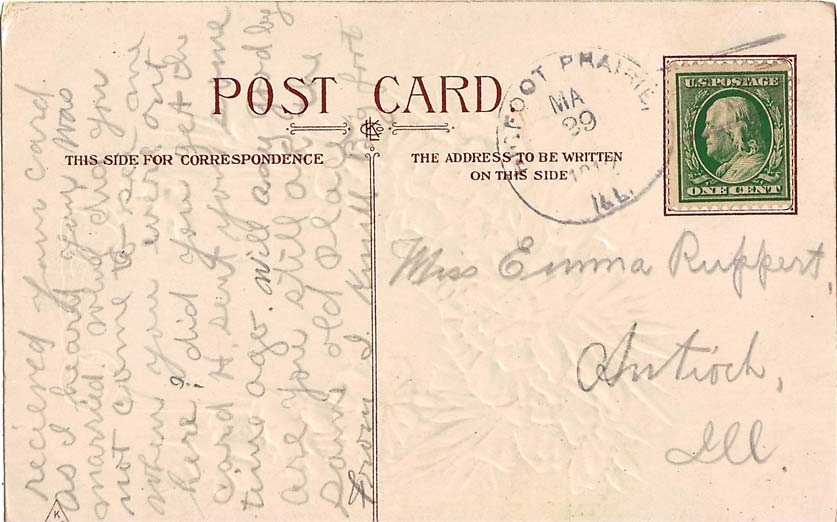 POST CARD.
THIS SIDE FOR CORRESPONDENCE
THE ADDRESS TO BE WRITTEN
ON THIS SIDE
FOOT PRAIRIE,
MA
29
ILL.
U.S. POSTAGE
ONE CENT
Miss Emma Ruppert,
Antioch,
Ill
recieved your card
as I heard you was
married. Why did you
not come to see me
when you were out
here? did you get the
card H. sent you some
time ago. will say good by
are you still at the
same old place
From I.
K